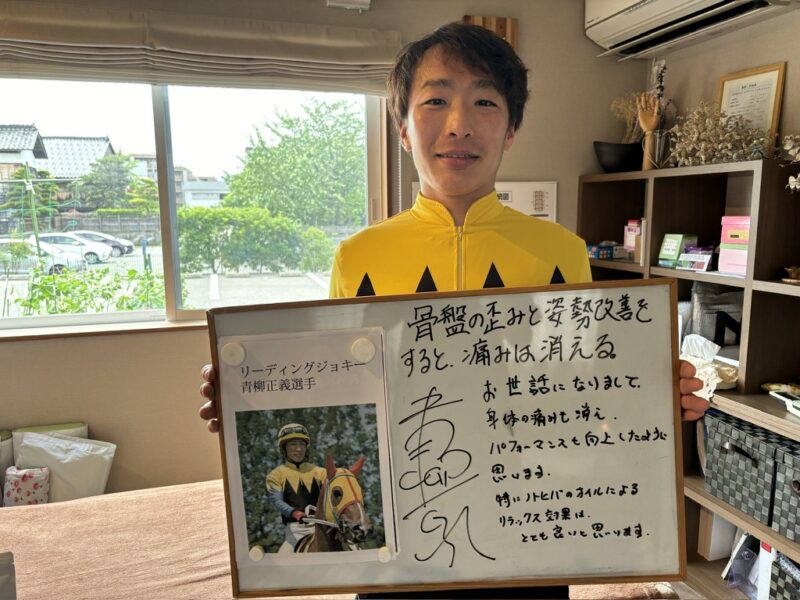 骨盤の歪みと姿勢改善を
すると、痛みは消える。
リーディングジョッキー
青柳正義選手
お世話になりまして、
身体の痛みも消え、
パフォーマンスも向上したように
思います。
特にノトヒバのオイルによる
リラックス効果は、
とても良いと思います。